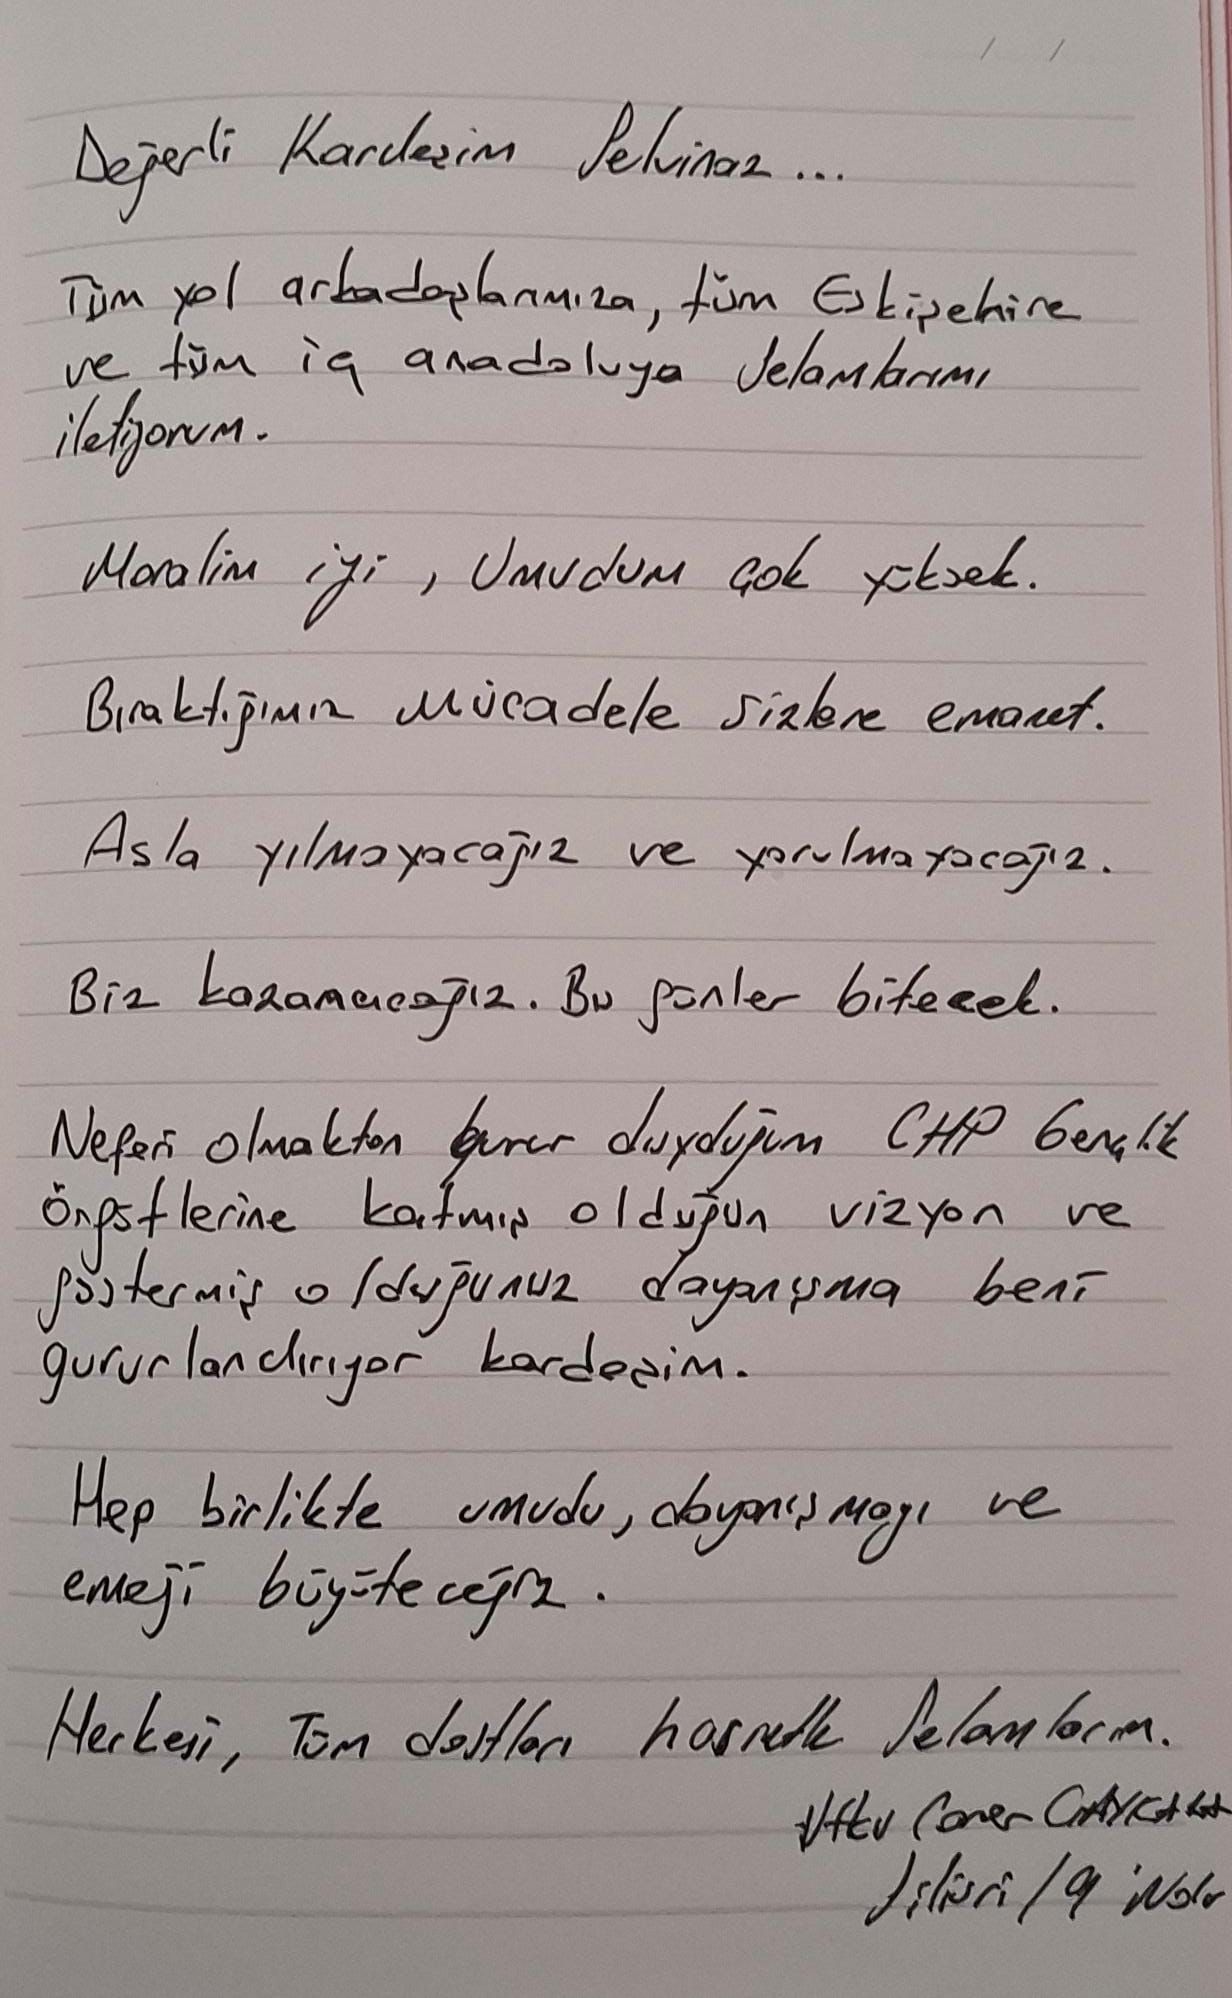 Değerli Kardeşim Selvinaz...
Tüm yol arkadaşlarımıza, tüm Eskişehire
ve tüm iç anadoluya Selamlarımı
iletiyorum.
Moralim iyi, Umudum çok yüksek.
Bıraktığımız mücadele sizlere emanet.
Asla yılmayacağız ve yorulmayacağız.
Biz kazanacağız. Bu günler bitecek.
Neferi olmaktan gurur duyduğum CHP Gençlik
örgütlerine katmış olduğun vizyon ve
göstermiş olduğunuz dayanışma beni
gururlandırıyor kardeşim.
Hep birlikte umudu, dayanışmayı ve
emeği büyüteceğiz.
Herkesi, Tüm dostları hasretle Selamlarım.
Utku Caner ÇAYKARA
Silivri / 9 Nolu